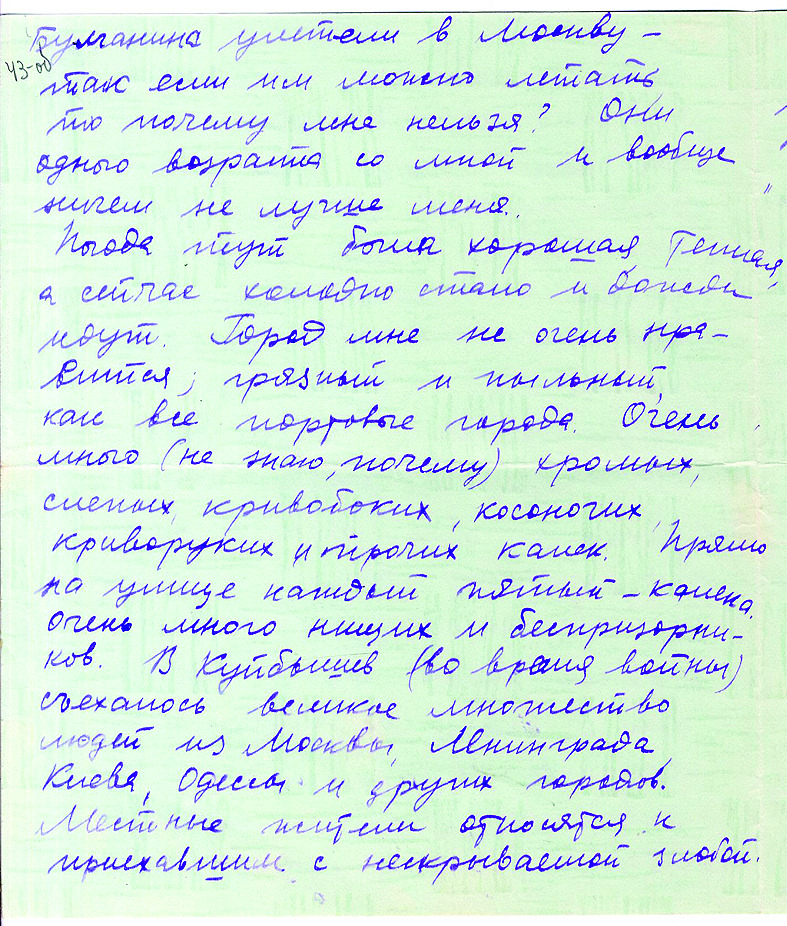 Булганина улетели в Москву –
43-об
так если им можно летать,
то почему мне нельзя? Они
одного возраста со мной и вообще
ничем не лучше меня.
Погода тут была хорошая Теплая,
а сейчас холодно стало и дожди
идут. Город мне не очень нра-
вится, грязный и пыльный,
как все портовые города. Очень
много (не знаю, почему) хромых,
слепых, кривобоких, косоногих,
криворуких и прочих калек. Прямо
на улице каждый пятый – калека.
Очень много нищих и беспризорни-
ков. В Куйбышев (во время войны)
съехалось великое множество
людей из Москвы, Ленинграда,
Киева, Одессы и других городов.
Местные жители относятся к
приехавшим с нескрываемой злобой.